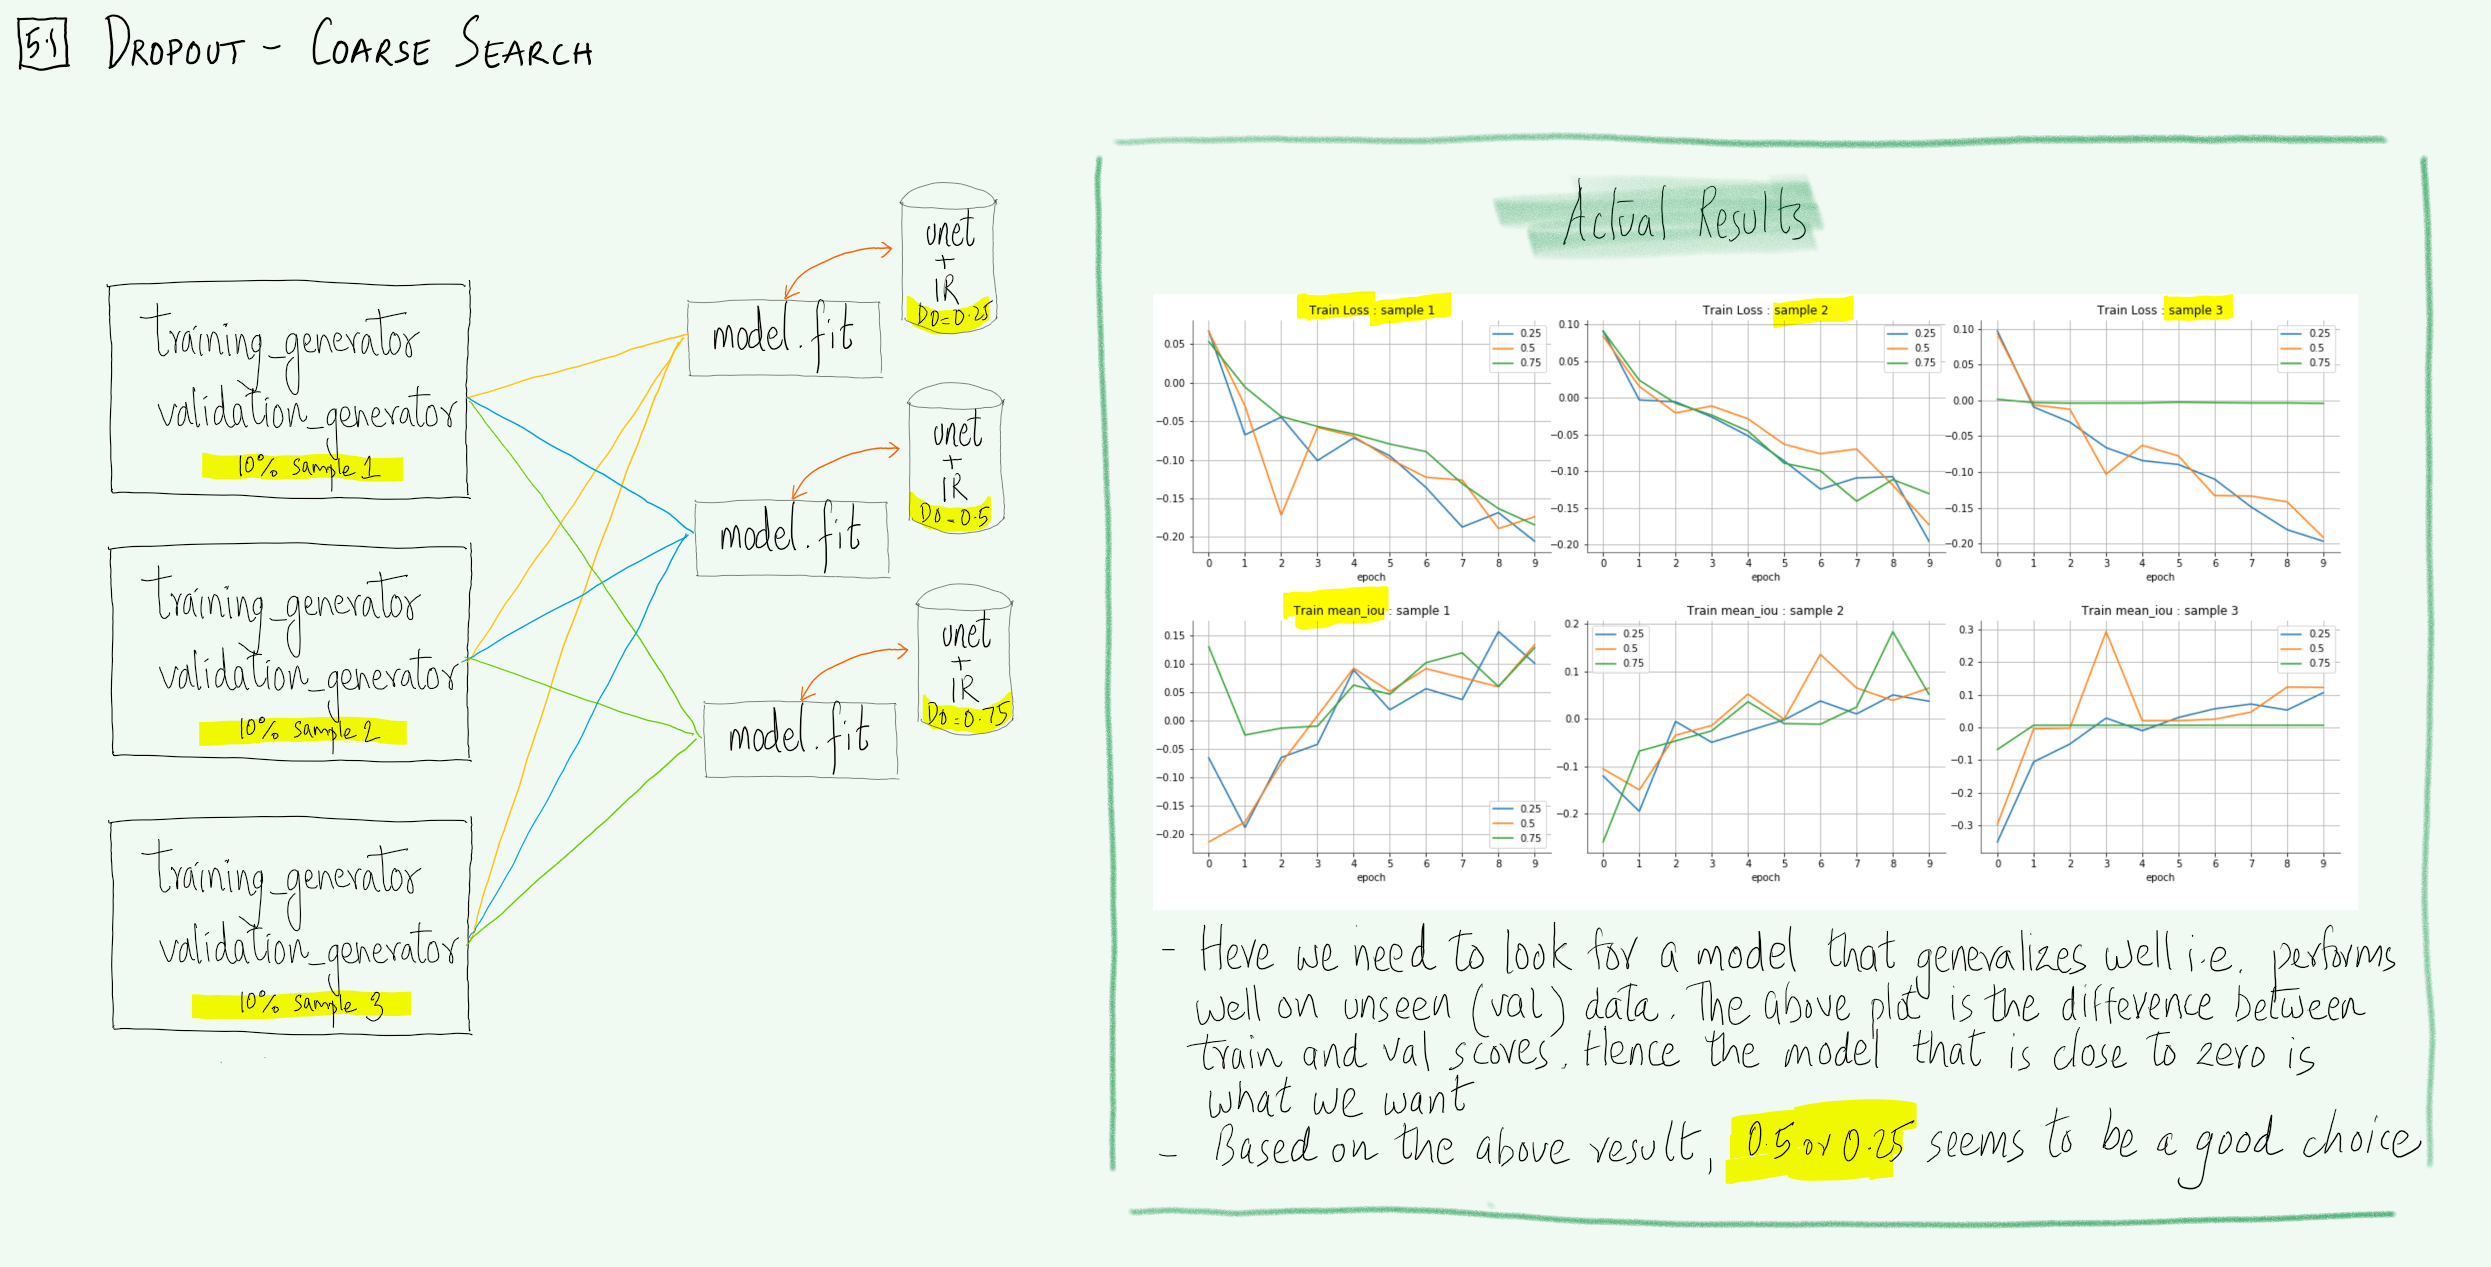 5.1 DROPOUT - COARSE SEARCH
training_generator
validation_generator
10% sample 1
training_generator
validation_generator
10% sample 2
training_generator
validation_generator
10% sample 3
model.fit
unet
+
IR
DO=0.25
model.fit
unet
+
IR
DO=0.5
model.fit
unet
+
IR
DO=0.75
Actual Results
Train Loss : sample 1
0.25
0.5
0.75
0.05
0.00
−0.05
−0.10
−0.15
−0.20
0 1 2 3 4 5 6 7 8 9
epoch
Train Loss : sample 2
0.25
0.5
0.75
0.10
0.05
0.00
−0.05
−0.10
−0.15
−0.20
0 1 2 3 4 5 6 7 8 9
epoch
Train Loss : sample 3
0.25
0.5
0.75
0.10
0.05
0.00
−0.05
−0.10
−0.15
−0.20
0 1 2 3 4 5 6 7 8 9
epoch
Train mean_iou : sample 1
0.15
0.10
0.05
0.00
−0.05
−0.10
−0.15
−0.20
0.25
0.5
0.75
0 1 2 3 4 5 6 7 8 9
epoch
Train mean_iou : sample 2
0.25
0.5
0.75
0.2
0.1
0.0
−0.1
−0.2
0 1 2 3 4 5 6 7 8 9
epoch
Train mean_iou : sample 3
0.25
0.5
0.75
0.3
0.2
0.1
0.0
−0.1
−0.2
−0.3
0 1 2 3 4 5 6 7 8 9
epoch
- Here we need to look for a model that generalizes well i.e. performs
well on unseen (val) data. The above plot is the difference between
train and val scores. Hence the model that is close to zero is
what we want
- Based on the above result, 0.5 or 0.25 seems to be a good choice